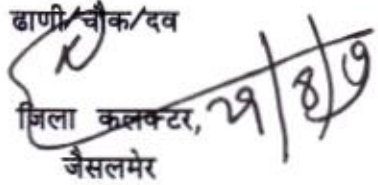 ढाणी/चौक/दव
जिला कलक्टर,
जैसलमेर